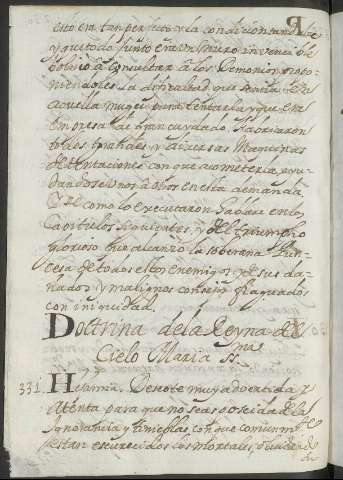 esto era tan perfecto y la condicion tan dulce
y que todo junto era un muro invencible
bolvio a consultar a los Demonios propo-
niendoles la dificultad que sentia de
aquella muger para tentarla y que era
empresa de gran cuydado. Fabricaron
todos grandes y diversas Maquinas
de tentaciones con que acometerla, ayu-
dandose unos a otros en esta demanda.
como lo executaron hablare en los
Capitulos siguientes, y del triumpho
glorioso que alcanzo la soberana Prin-
cesa de todos estos enemigos y de sus da-
ñados y malignos consejos fraguados
con iniquidad.
Doctrina de la Reyna del
Cielo Maria SS.ma
331 Hija mia. Deseote muy advertida y
atenta para que no seas poseida de la
ignorancia y tinieblas con que comunm.te
estan escurecidos los mortales, olvidando